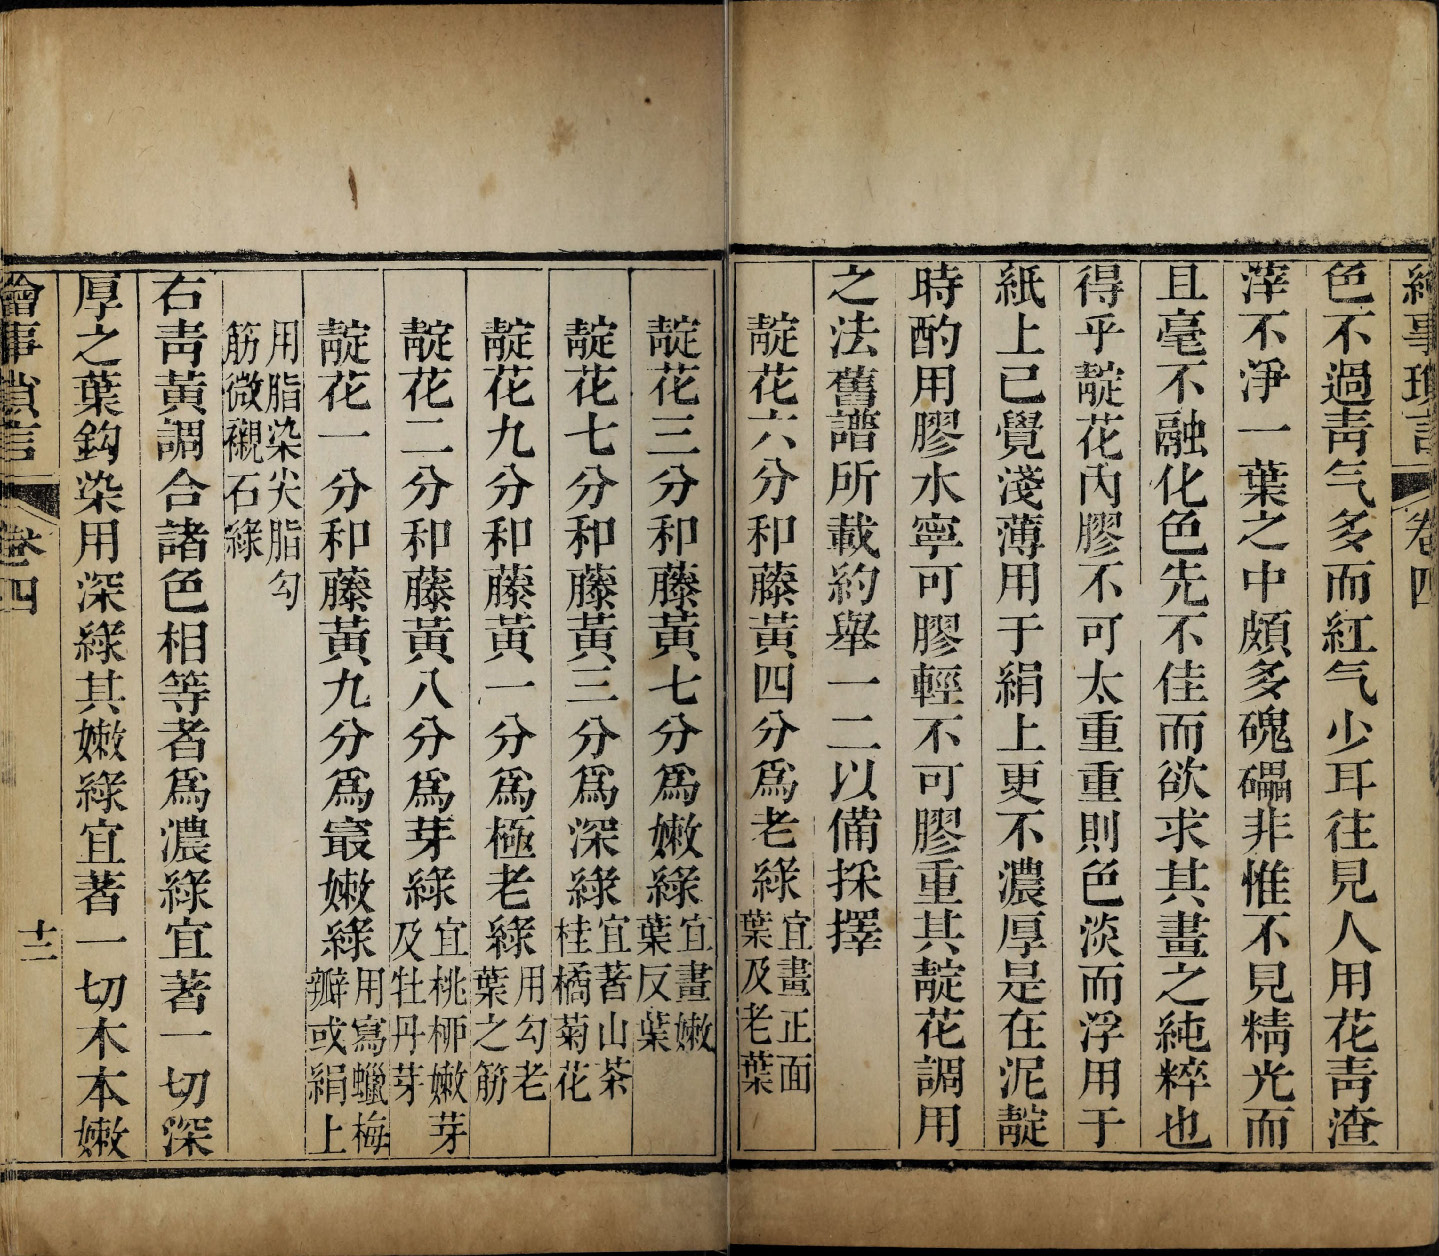 繪事瑣言 卷四
色不過靑气多而紅气少耳往見人用花靑渣
滓不淨一葉之中頗多磈礧非惟不見精光而
且毫不融化色先不佳而欲求其畫之純粹也
得乎靛花內膠不可太重重則色淡而浮用于
紙上已覺淺薄用于絹上更不濃厚是在泥靛
時酌用膠水寧可膠輕不可膠重其靛花調用
之法舊譜所載約舉一二以備採擇
靛花六分和藤黃四分爲老綠宜畫正面
葉及老葉
靛花三分和藤黃七分爲嫩綠宜畫嫩
葉反葉
靛花七分和藤黃三分爲深綠宜著山茶
桂橘菊花
靛花九分和藤黃一分爲極老綠用勾老
葉之筋
靛花二分和藤黃八分爲芽綠宜桃桺嫩芽
及牡丹芽
靛花一分和藤黃九分爲冣嫩綠用寫蠟梅
瓣或絹上
用脂染尖脂勾
筋微襯石綠
右靑黃調合諸色相等者爲濃綠宜著一切深
厚之葉鈎染用深綠其嫩綠宜著一切木本嫩
繪事瑣言 卷四 十二